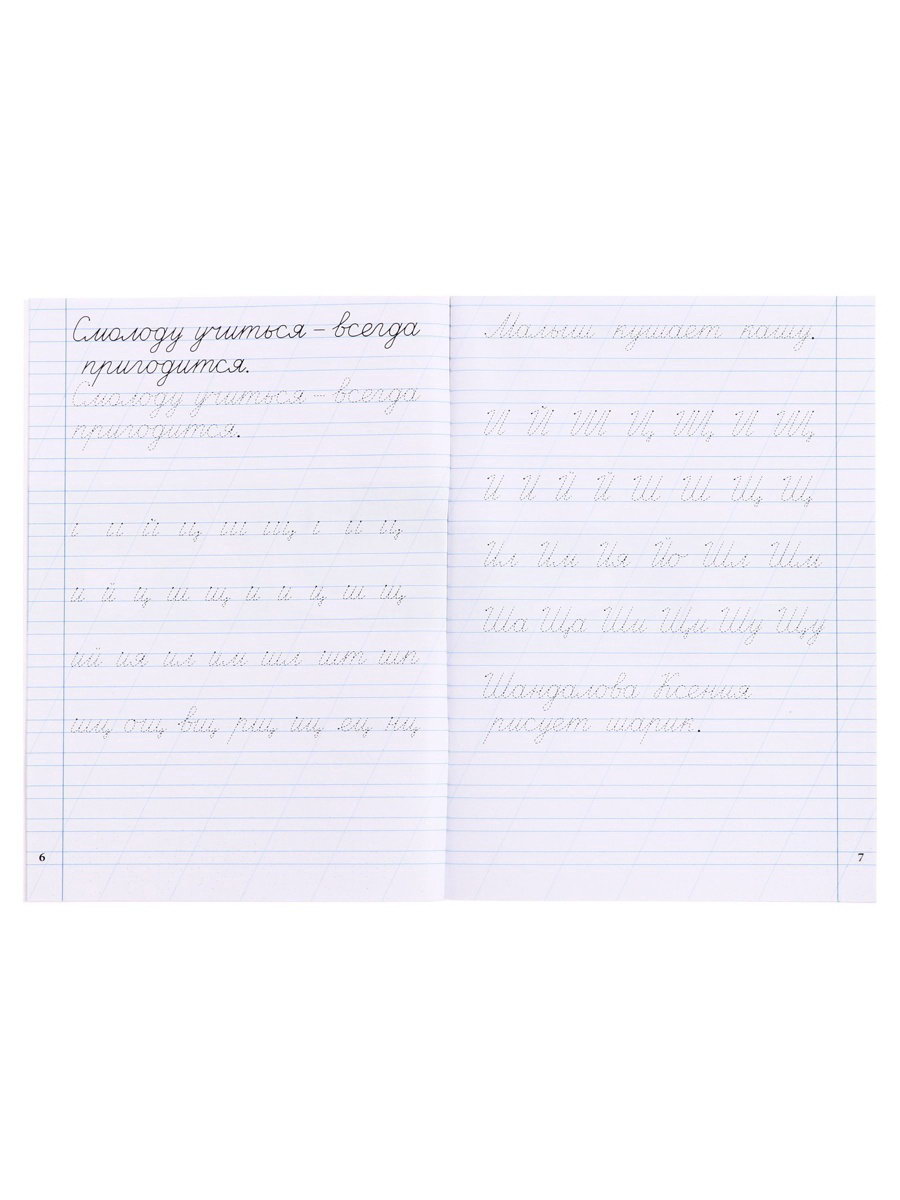 Смолоду учиться – всегда
пригодится.
Смолоду учиться – всегда
пригодится.
і и й ц ш щ і и ц
и й ц ш щ и й ц ш щ
ий ия ил им шл шт шп
щ ощ вщ рщ щ ец нц
6
Малыш кушает кашу.
И Й Ш Ц Щ И Щ
И И Й Й Ш Ш Щ Щ
Ил Им Ия Йо Шл Шм
Ша Ща Ши Щи Шу Щу
Шандалова Ксения
рисует шарик.
7